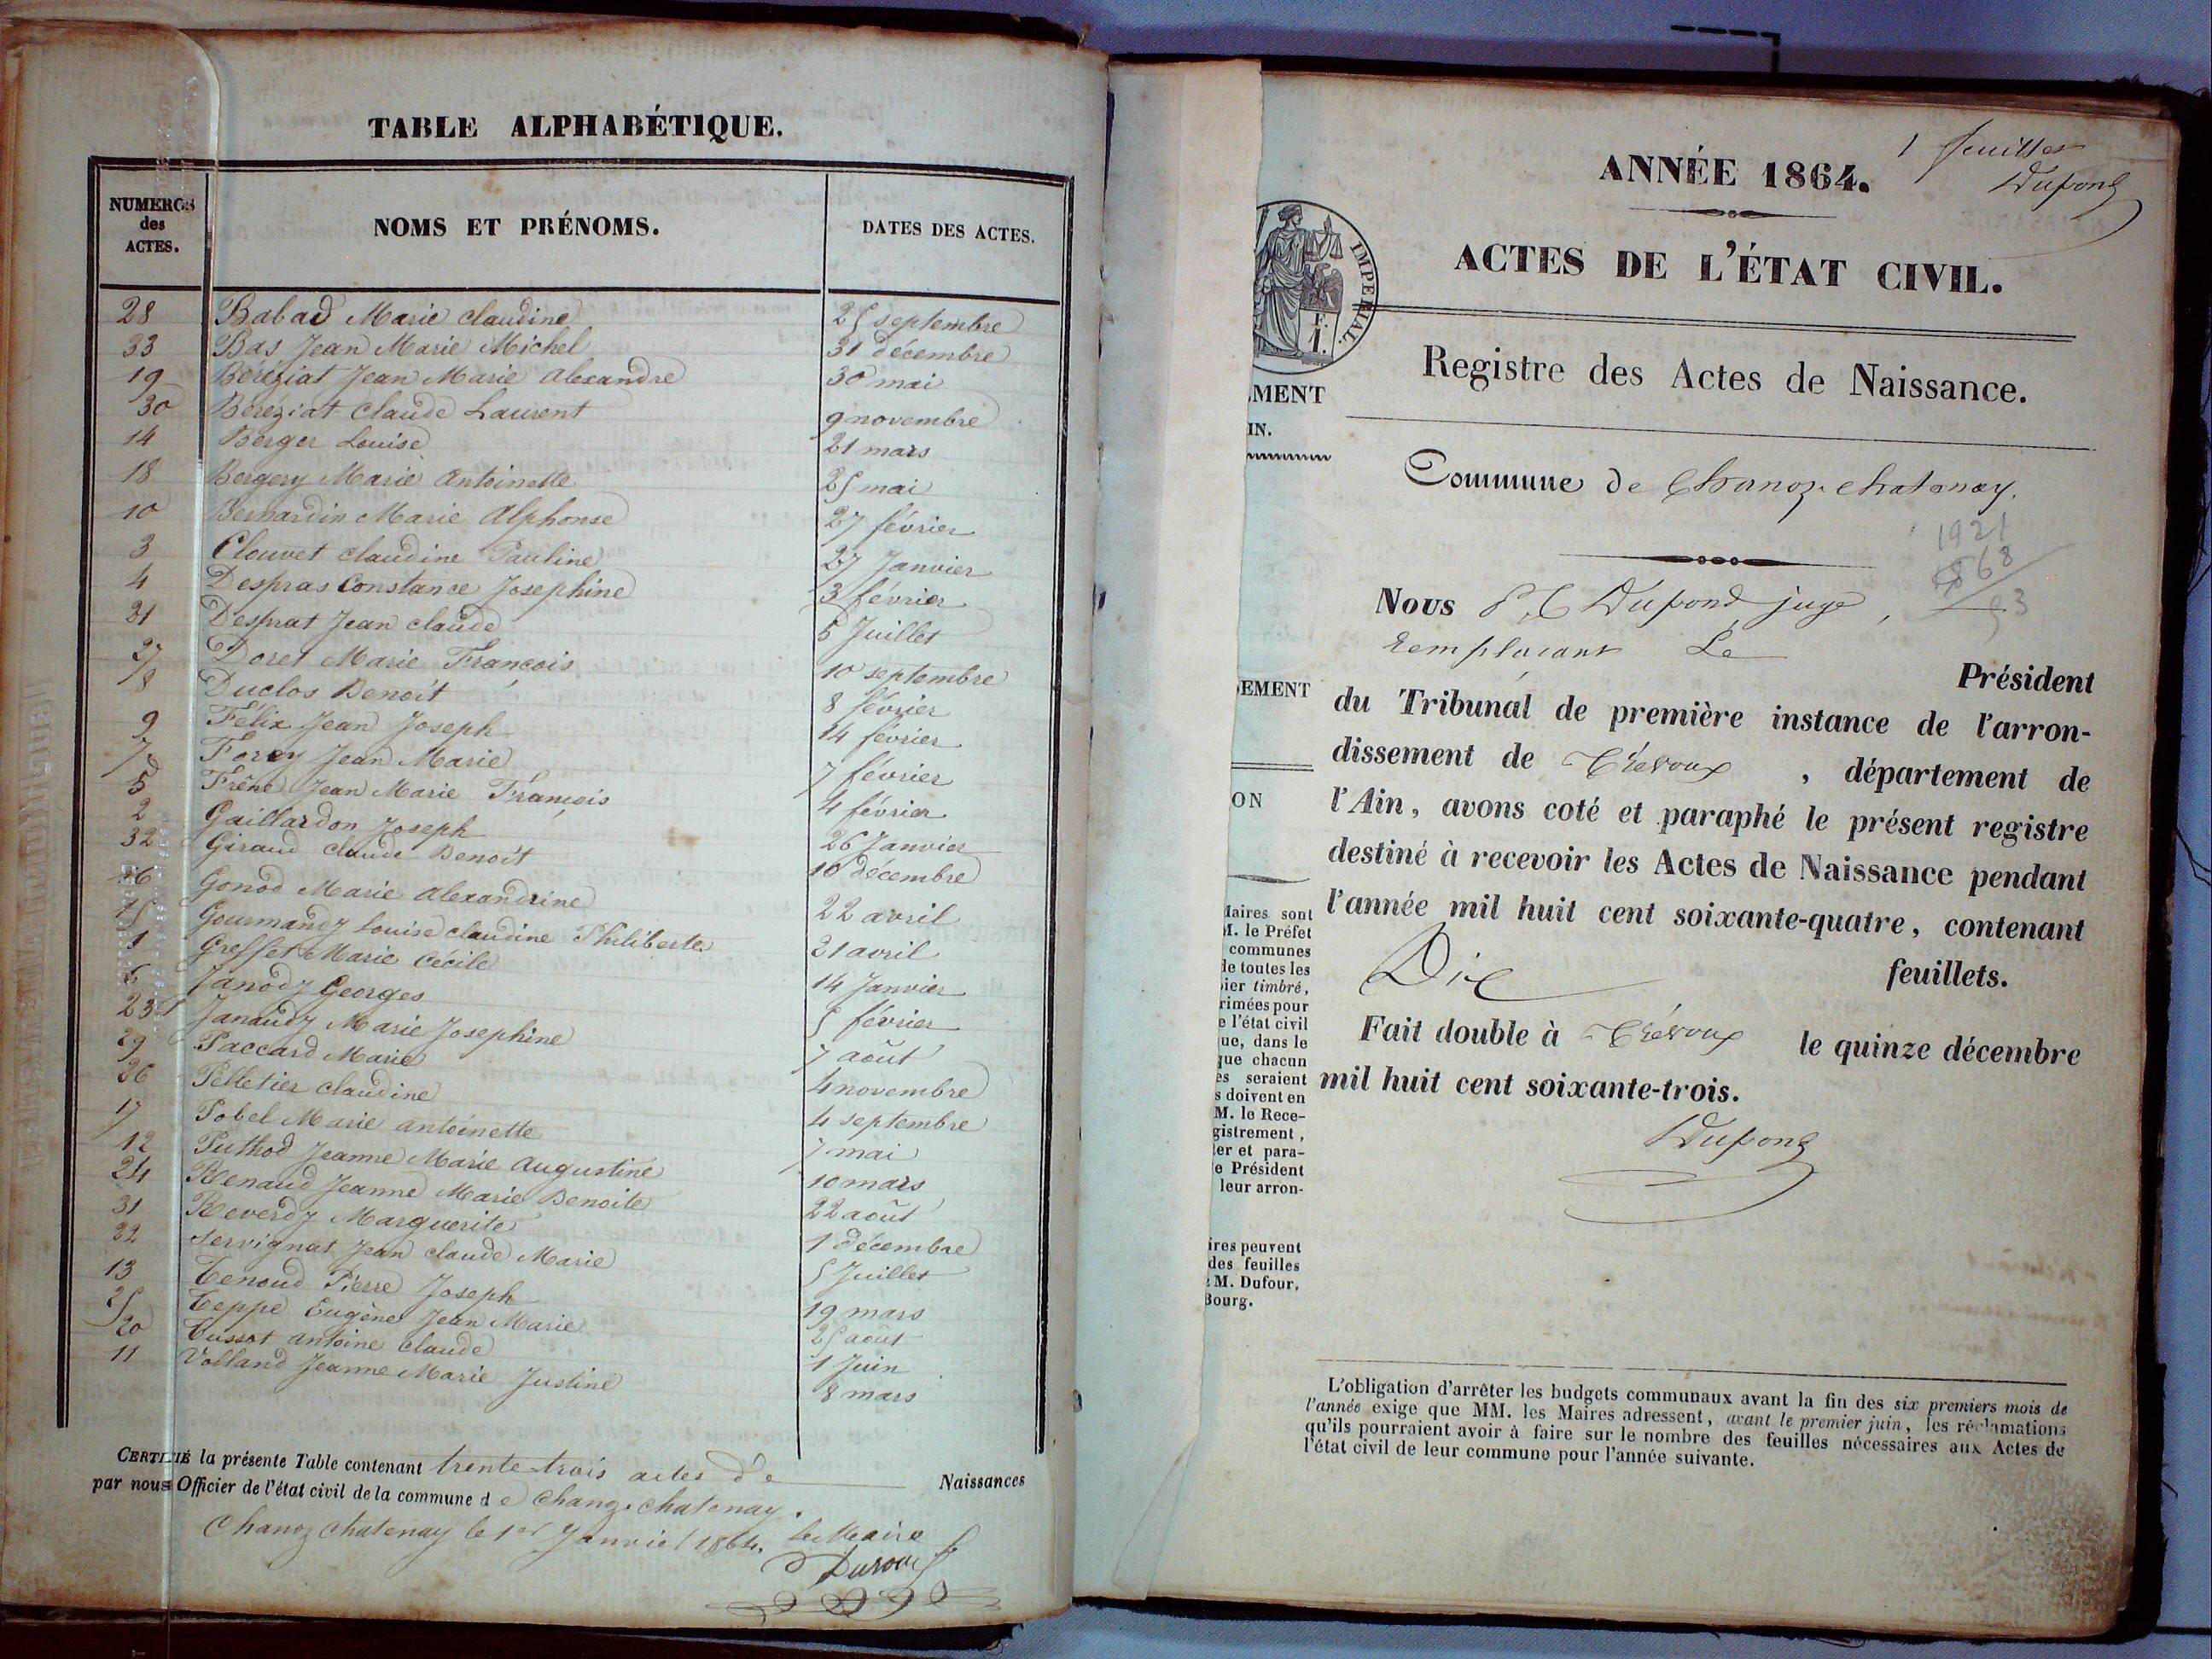 TABLE ALPHABÉTIQUE.
NUMEROS des ACTES. NOMS ET PRÉNOMS. DATES DES ACTES.
28 Babad Marie Claudine 25 septembre
33 Bas Jean Marie Michel 31 décembre
19 Béréziat Jean Marie Alexandre 30 mai
30 Béréziat Claude Laurent 9 novembre
14 Berger Louise 21 mars
18 Bergery Marie Antoinette 25 mai
10 Bernardin Marie Alphonse 27 février
3 Clouvet Claudine Pauline 27 Janvier
4 Despras Constance Josephine 3 février
21 Desprat Jean Claude 5 Juillet
27 Doret Marie François 10 septembre
8 Duclos Benoit 8 février
9 Félix Jean Joseph 14 février
7 Forey Jean Marie 7 février
5 Frêne Jean Marie François 4 février
2 Gaillardon Joseph 26 Janvier
32 Giraud Claude Benoit 10 décembre
16 Gonod Marie Alexandrine 22 avril
15 Gourmandy Louise Claudine Philiberte 21 avril
1 Greffet Marie Cécile 14 Janvier
6 Janody Georges 5 février
23 Janaudy Marie Josephine 7 août
29 Paccard Marie 4 novembre
26 Pelletier Claudine 4 septembre
17 Pobel Marie antoinette 7 mai
12 Puthod Jeanne Marie Augustine 10 mars
24 Renaud Jeanne Marie Benoite 22 août
31 Reverdy Marguerite 1 décembre
22 Servignat Jean Claude Marie 5 Juillet
13 Tenoud Pierre Joseph 19 mars
25 Teppe Eugène Jean Marie 25 août
20 Tussot antoine Claude 1 Juin
11 Volland Jeanne Marie Justine 8 mars
CERTIFIÉ la présente Table contenant trente-trois actes de Naissances
par nous Officier de l'état civil de la commune de Chanoz-Chatenay.
Chanoz Chatenay le 1er Janvier 1864. Le Maire
1 feuillet
Dupond
ANNÉE 1864.
ACTES DE L'ÉTAT CIVIL.
IMPERIAL.
Registre des Actes de Naissance.
EMENT
IN.
Commune de Chanoz-Chatenay.
1921
1868
53
Nous Dupond juge,
remplaçant Le
Président
EMENT
du Tribunal de première instance de l'arron-
dissement de Trévoux, département de
ON
l'Ain, avons coté et paraphé le présent registre
destiné à recevoir les Actes de Naissance pendant
l'année mil huit cent soixante-quatre, contenant
Dix feuillets.
Fait double à Trévoux le quinze décembre
mil huit cent soixante-trois.
Dupond
Maires sont
M. le Préfet
communes
de toutes les
pier timbré,
rimées pour
e l'état civil
ue, dans le
que chacun
es seraient
s doivent en
M. le Rece-
gistrement,
ter et para-
e Président
leur arron-
ires peuvent
des feuilles
M. Dufour,
Bourg.
L'obligation d'arrêter les budgets communaux avant la fin des six premiers mois de
l'année exige que MM. les Maires adressent, avant le premier juin, les réclamations
qu'ils pourraient avoir à faire sur le nombre des feuilles nécessaires aux Actes de
l'état civil de leur commune pour l'année suivante.